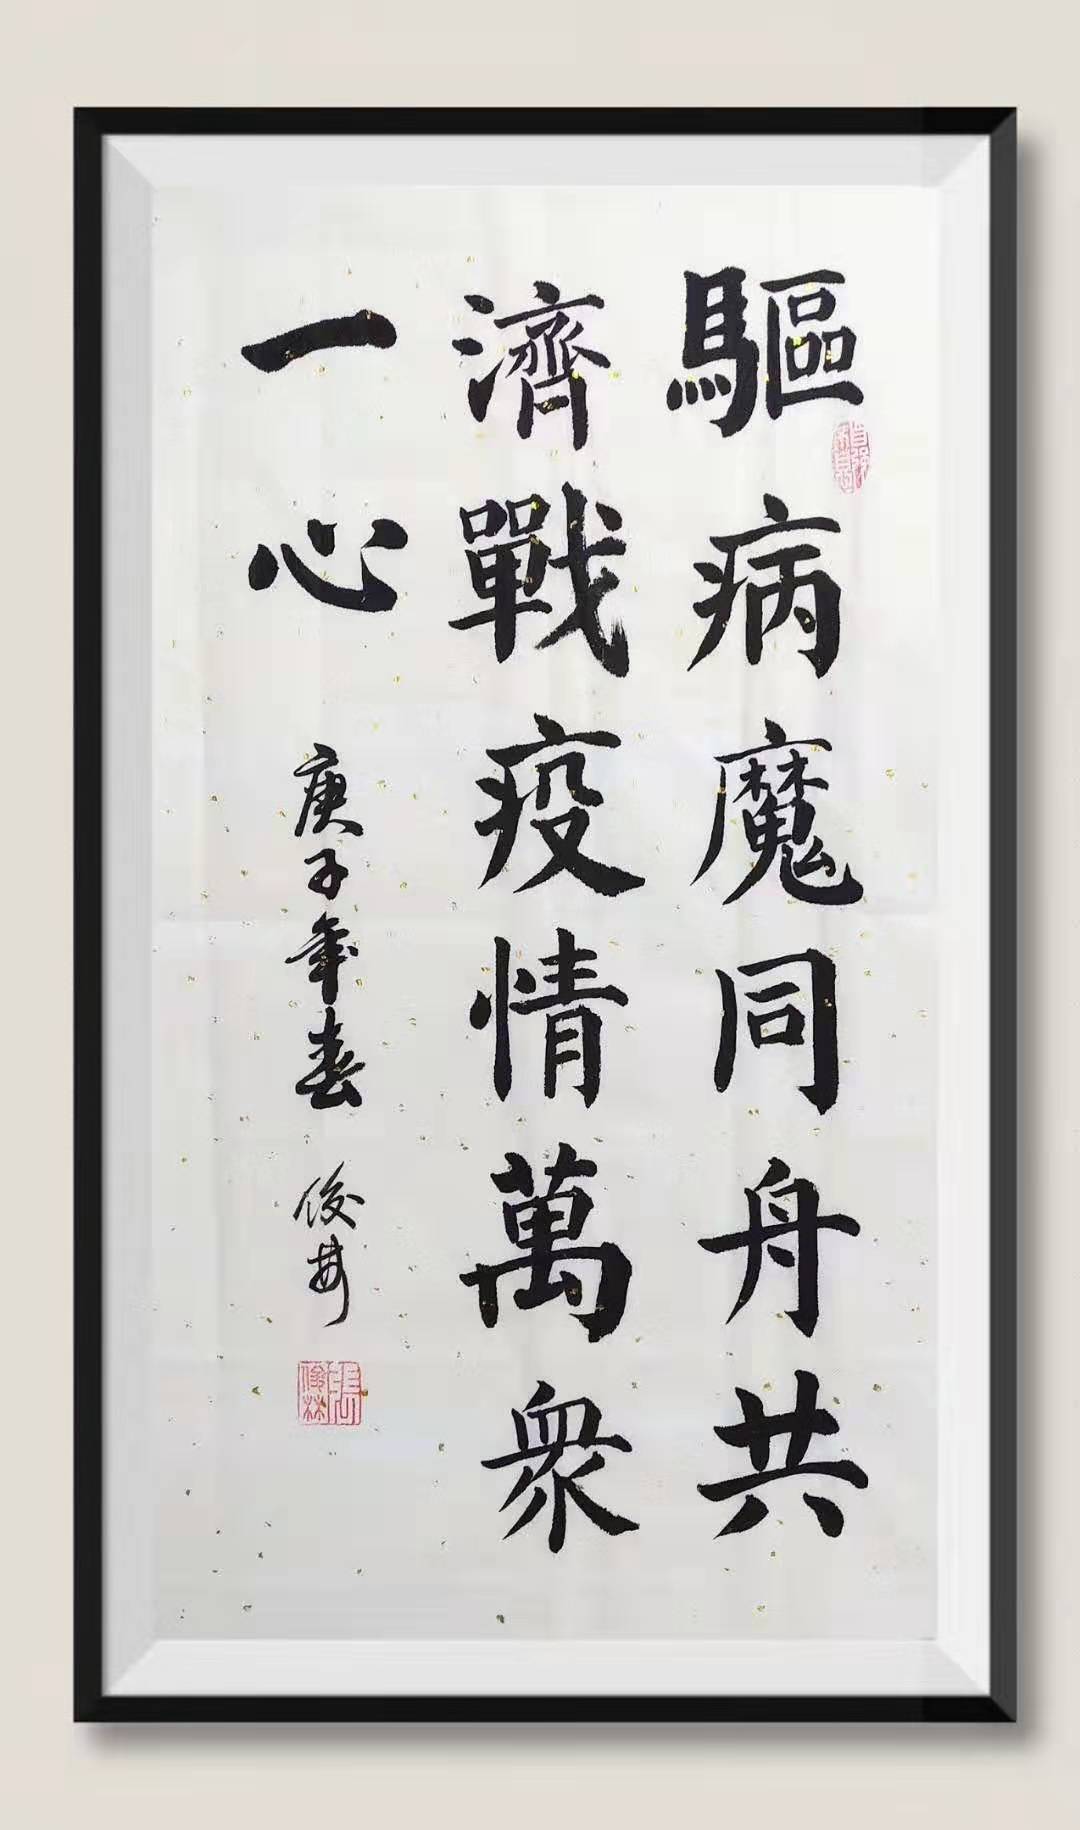 驅病魔同舟共
濟戰疫情萬衆
一心
庚子年春 俊林
張俊林